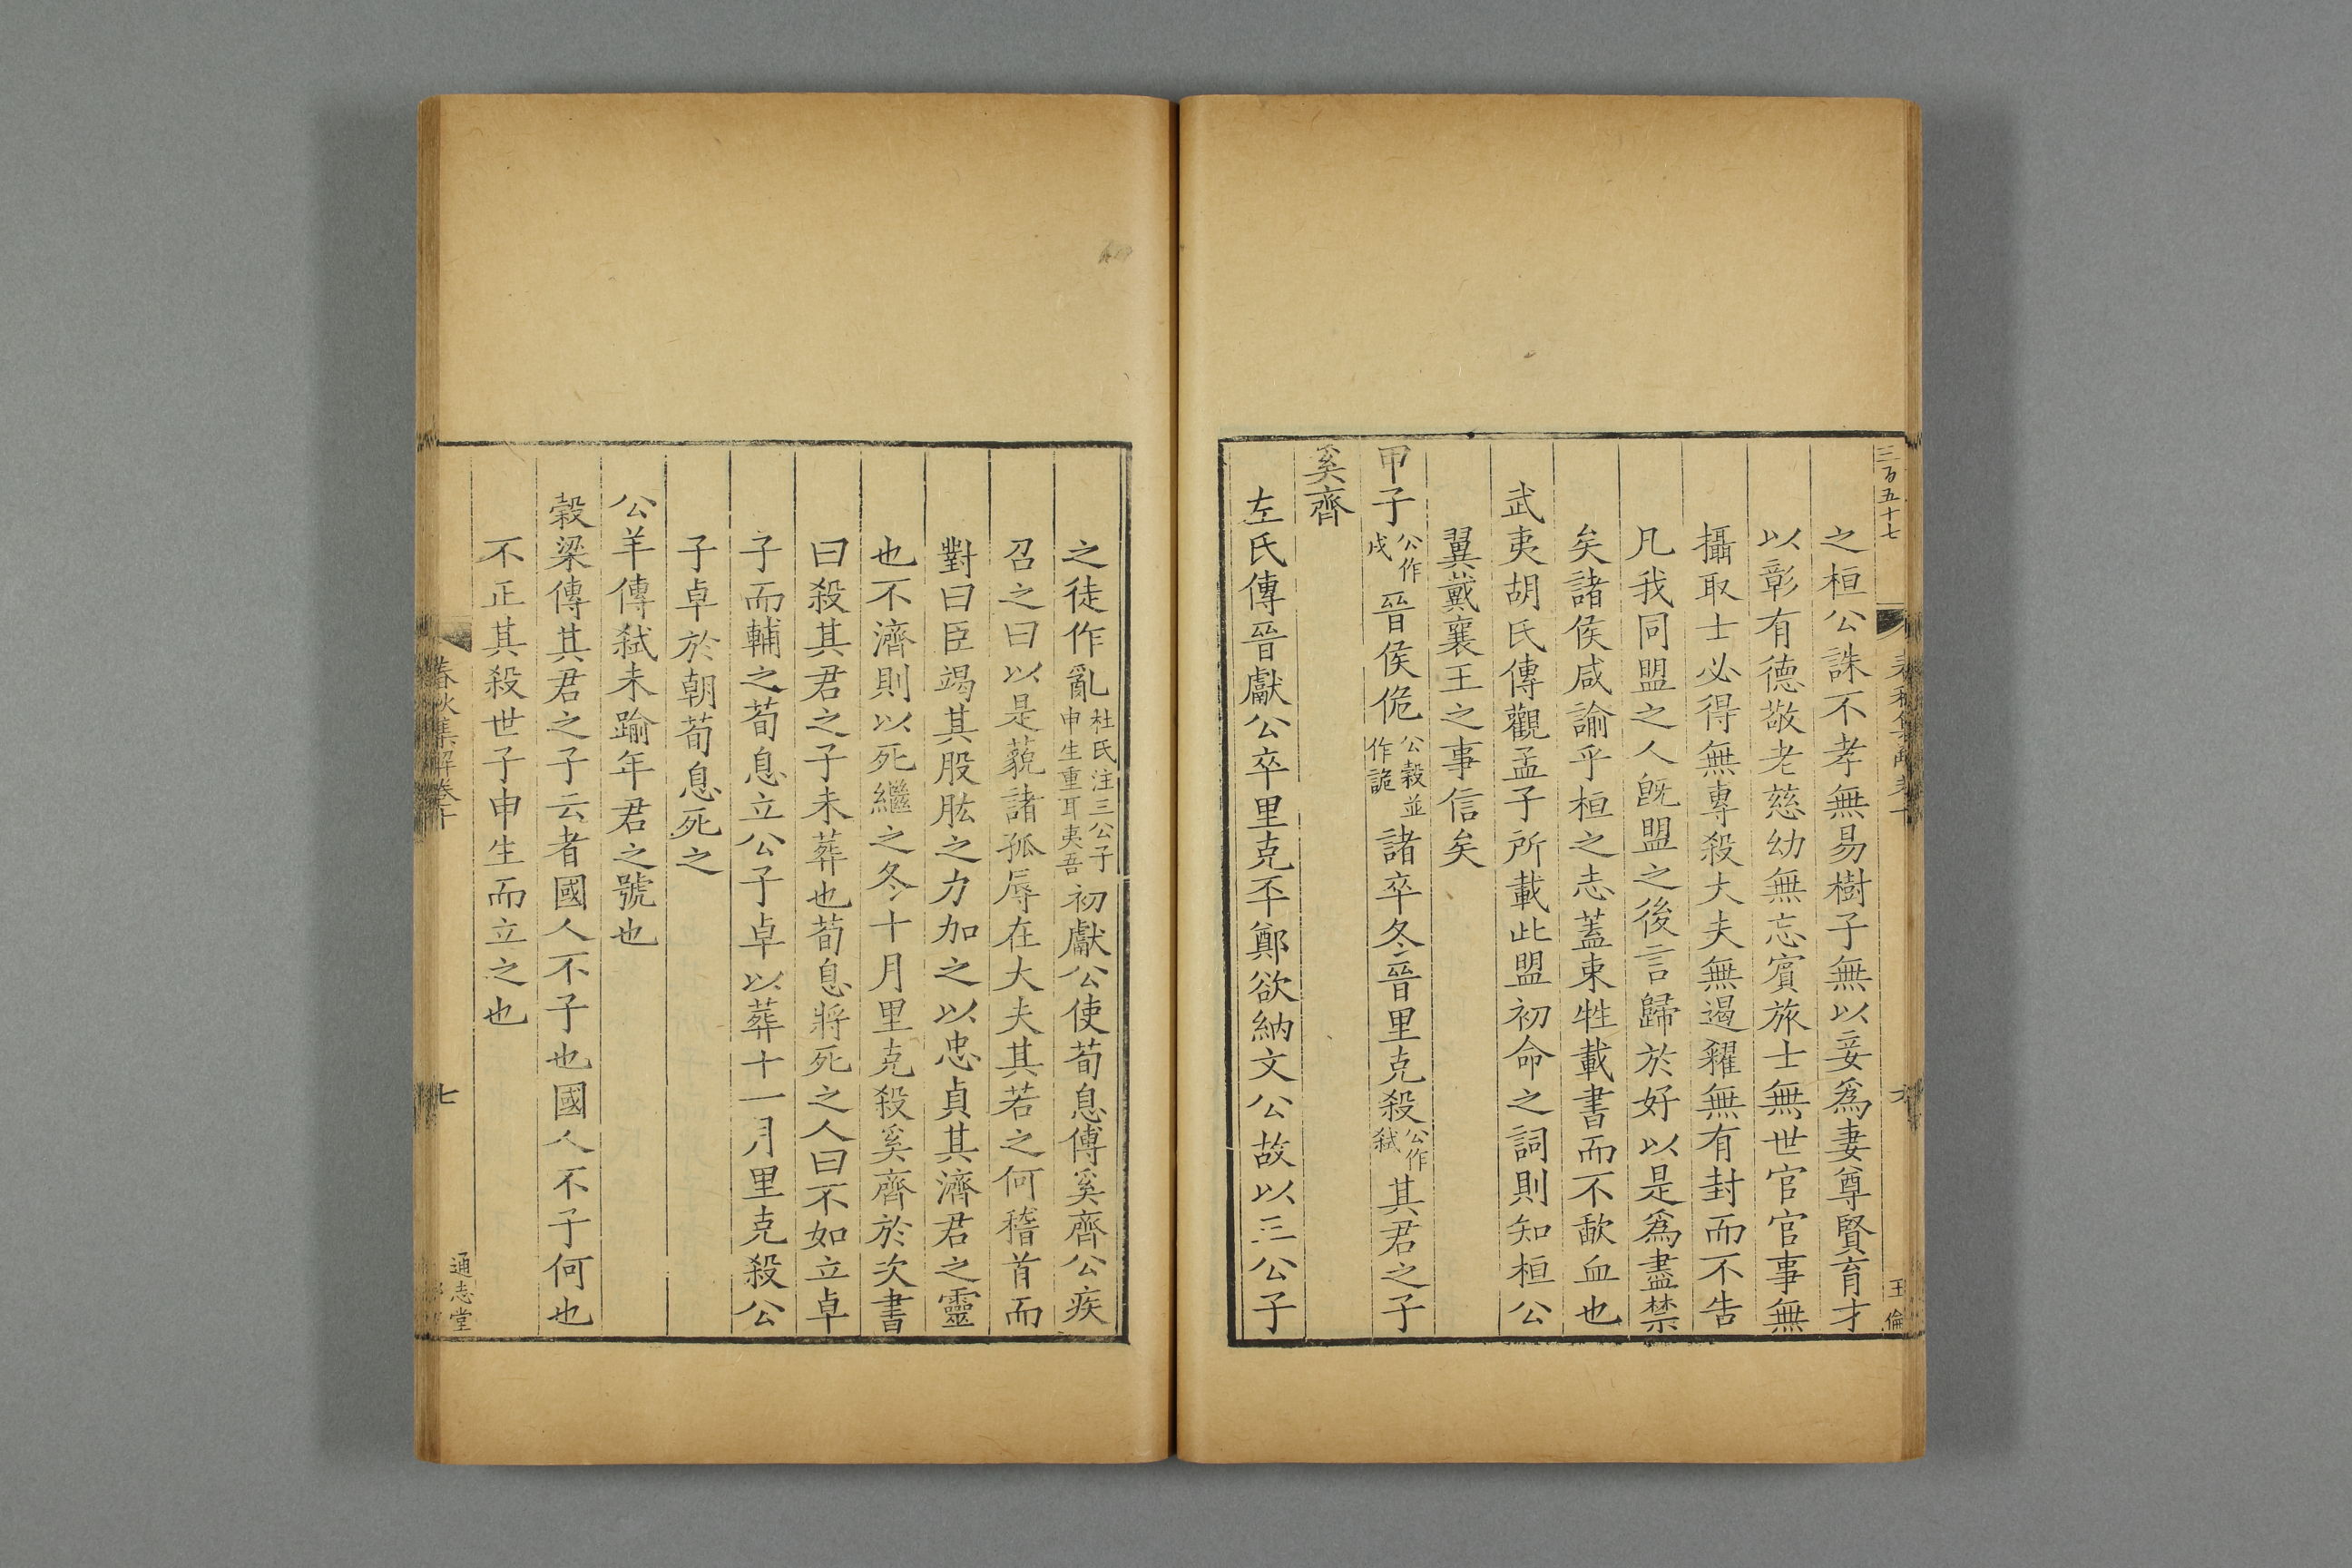 三百五十七
春秋集解卷十
六
王倫
之桓公誅不孝無易樹子無以妾爲妻尊賢育才
以彰有德敬老慈幼無忘賓旅士無世官官事無
攝取士必得無專殺大夫無遏糴無有封而不告
凡我同盟之人旣盟之後言歸於好以是爲盡禁
矣諸侯咸諭乎桓之志蓋束牲載書而不歃血也
武夷胡氏傳觀孟子所載此盟初命之詞則知桓公
翼戴襄王之事信矣
甲子公作戌晉侯佹公穀並作詭諸卒冬晉里克殺公作弑其君之子
奚齊
左氏傳晉獻公卒里克丕鄭欲納文公故以三公子
之徒作亂杜氏注三公子申生重耳夷吾初獻公使荀息傅奚齊公疾
召之曰以是藐諸孤辱在大夫其若之何稽首而
對曰臣竭其股肱之力加之以忠貞其濟君之靈
也不濟則以死繼之冬十月里克殺奚齊於次書
曰殺其君之子未葬也荀息將死之人曰不如立卓
子而輔之荀息立公子卓以葬十一月里克殺公
子卓於朝荀息死之
公羊傳弑未踰年君之號也
穀梁傳其君之子云者國人不子也國人不子何也
不正其殺世子申生而立之也
春秋集解卷十
七
通志堂